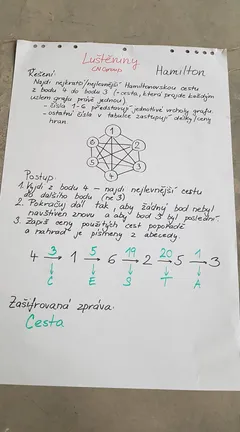 Luštěniny
CN Group
Hamilton
Řešení:
Najdi nejkratší/nejlevnější Hamiltonovskou cestu
z bodu 4 do bodu 3 (= cesta, která projde každým
uzlem grafu právě jednou)
- čísla 1-6 představují jednotlivé vrcholy grafu.
- ostatní čísla v tabulce zastupují délky/ceny
hran.
1
6 2
5 3
4
Postup:
1. Vyjdi z bodu 4 – najdi nejlevnější cestu
do dalšího bodu (ne 3)
2. Pokračuj dál tak, aby žádný bod nebyl
navštíven znovu a aby bod 3 byl poslední.
3. Zapiš ceny použitých cest popořadě
a nahraď je písmeny z abecedy.
3 5 19 20 1
4 → 1 → 6 → 2 → 5 → 3
C E S T A
Zašifrovaná zpráva:
Cesta